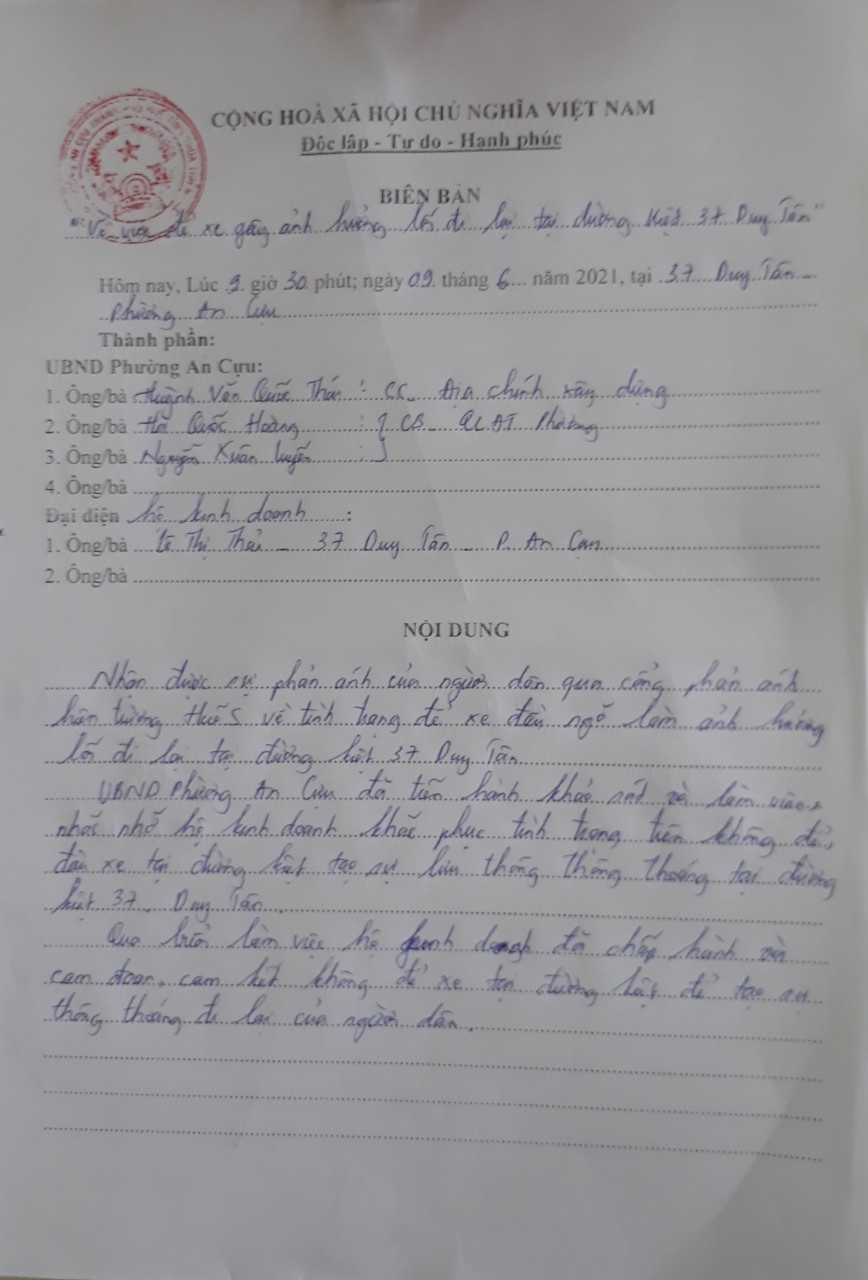 CỘNG HOÀ XÃ HỘI CHỦ NGHĨA VIỆT NAM
Độc lập - Tự do - Hạnh phúc
BIÊN BẢN
"Về việc để xe gây ảnh hưởng lối đi lại tại đường kiệt 37 Duy Tân"
Hôm nay, Lúc 9 giờ 30 phút; ngày 09 tháng 6 năm 2021, tại 37 Duy Tân -
Phường An Cựu
Thành phần:
UBND Phường An Cựu:
1. Ông/bà Huỳnh Văn Quốc : CC - Địa chính xây dựng
2. Ông/bà Hồ Quốc Hoàng : } CB - Phường
3. Ông/bà Nguyễn Xuân :
4. Ông/bà
Đại diện hộ kinh doanh :
1. Ông/bà Lê Thị - 37 Duy Tân - P. An Cựu
2. Ông/bà
NỘI DUNG
Nhận được sự phản ánh của người dân qua cổng phản ánh
hiện trường Huế S về tình trạng để xe đầu ngõ làm ảnh hưởng
lối đi lại tại đường kiệt 37 Duy Tân
UBND Phường An Cựu đã tiến hành khảo sát và làm việc,
nhắc nhở hộ kinh doanh khắc phục tình trạng trên không để,
đậu xe tại đường kiệt tạo sự lưu thông thông thoáng tại đường
kiệt 37 Duy Tân.
Qua buổi làm việc hộ kinh doanh đã chấp hành và
cam đoan, cam kết không để xe tại đường kiệt để tạo sự
thông thoáng đi lại của người dân.